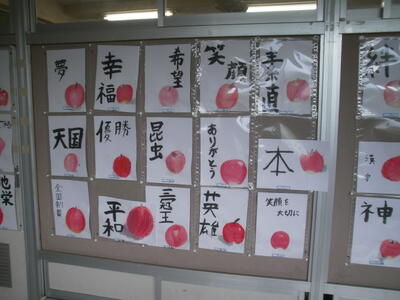 夢
幸福
希望
笑顔
素直
絆
天国
優勝
昆虫
ありがとう
本
栄
全国制覇
平和
三冠王
英雄
笑顔を
大切に
神